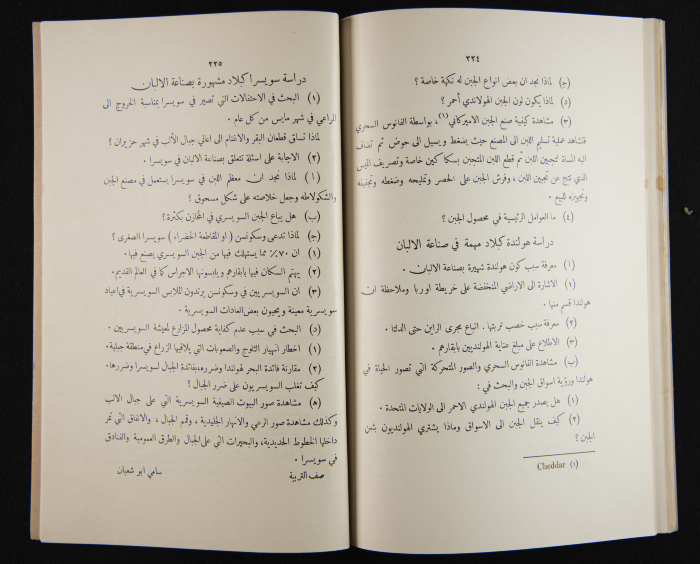 ٢٢٤
(ج) لماذا نجد ان بعض انواع الجبن له نكهة خاصة ؟
(د) لماذا يكون لون الجبن الهولاندي أحمر ؟
(٣) مشاهدة كيفية صنع الجبن الاميركاني(١)، بواسطة الفانوس السحري
فنشاهد عملية تسليم اللبن الى المصنع حيث يضغط ويسيل الى حوض ثم تضاف
اليه المساة لتجبين اللبن ثم قطع اللبن المتجبن بسكاكين خاصة وتصريف الميس
الذي نتج عن تجبين اللبن ، وفرش الجبن على الحصر وتمليحه وضغطه وتجفيفه
وتجهيزه للبيع .
(٤) ما العوامل الرئيسية في محصول الجبن ؟
دراسة هولندة كبلاد مهمة في صناعة الالبان
(أ) معرفة سبب كون هولندة شهيرة بصناعة الالبان .
(١) الاشارة الى الاراضي المنخفضة على خريطة اوربا وملاحظة ان
هولندا قسم منها .
(٢) معرفة سبب خصب تربتها . اتباع مجرى الراين حتى الدلتا .
(٣) الاطلاع على مبلغ عناية الهولنديين بابقارهم .
(ب) مشاهدة الفانوس السحري والصور المتحركة التي تصور الحياة في
هولندا ورؤية اسواق الجبن والبحث في :
(١) هل يصدر جميع الجبن الهولندي الاحمر الى الولايات المتحدة .
(٢) كيف ينقل الجبن الى الاسواق وماذا يشتري الهولنديون بثمن
الجبن ؟
(١) Cheddar
٢٢٥
دراسة سويسرا كبلاد مشهورة بصناعة الالبان
(١) البحث في الاحتفالات التي تصير في سويسرا بمناسبة الخروج الى
المراعي في شهر مايس من كل عام .
لماذا تساق قطعان البقر والاغنام الى اعالي جبال الألب في شهر حزيران ؟
(٢) الاجابة على اسئلة تتعلق بصناعة الالبان في سويسرا .
(أ) لماذا نجد ان معظم اللبن في سويسرا يستعمل في مصنع الجبن
والشكولاطه وجعل خلاصته على شكل مسحوق ؟
(ب) هل يباع الجبن السويسري في المخازن بكثرة ؟
(ج) لماذا تدعى وسكونسن ( او المقاطعة الخضراء ) سويسرا الصغرى ؟
(١) ان ٧٠٪ مما يستهلك فيها من الجبن السويسري يصنع فيها .
(٢) يهتم السكان فيها بابقارهم ويلبسونها الاجراس كما في العالم القديم .
(٣) ان السويسريين في وسكونسن يرتدون الملابس السويسرية في اعياد
سويسرية معينة ويحيون بعض العادات السويسرية .
(د) البحث في سبب عدم كفاية محصول المزارع لمعيشة السويسريين .
(١) اخطار انهيار الثلوج والصعوبات التي يلاقيها الزراع في منطقة جبلية .
(٢) مقارنة فائدة البحر لهولندا وضرره، بفائدة الجبال لسويسرا وضررها .
كيف تغلب السويسريون على ضرر الجبال ؟
(ه) مشاهدة صور البيوت الصيفية السويسرية التي على جبال الالب
وكذلك مشاهدة صور الرعي والانهار الجليدية ، وقمم الجبال ، والانفاق التي تمر
داخلها الخطوط الحديدية، والبحيرات التي على الجبال والطرق العمومية والفنادق
في سويسرا .
صف التربية سامي ابو شعبان